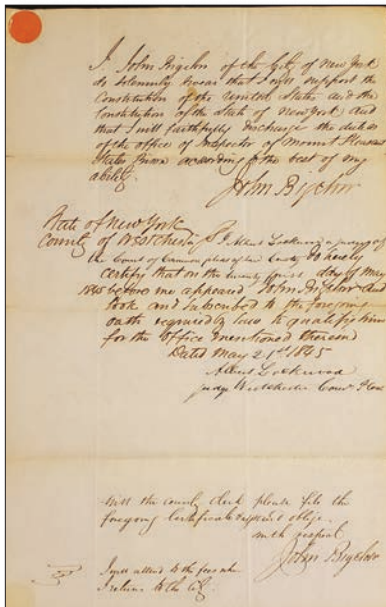 I, John Bigelow of the City of New York
do solemnly swear that I will support the
Constitution of the United States and the
Constitution of the State of New York and
that I will faithfully discharge the duties
of the office of Inspector of Mount Pleasant
States Prison according to the best of my
ability.
John Bigelow
State of New York
County of Westchester Ss I Albert Lockwood a judge of
the Court of Common pleas of the County do hereby
certify that on the twenty first day of May
1845 before me appeared John Bigelow and
took and subscribed to the foregoing
oath required by law to qualify him
for the office mentioned therein
Dated May 21st 1845
Albert Lockwood
judge Westchester Com Pleas
Will the county clerk please file the
foregoing Certificate & oblige
with respect
John Bigelow
I will attend to the fees when
I return to the City.